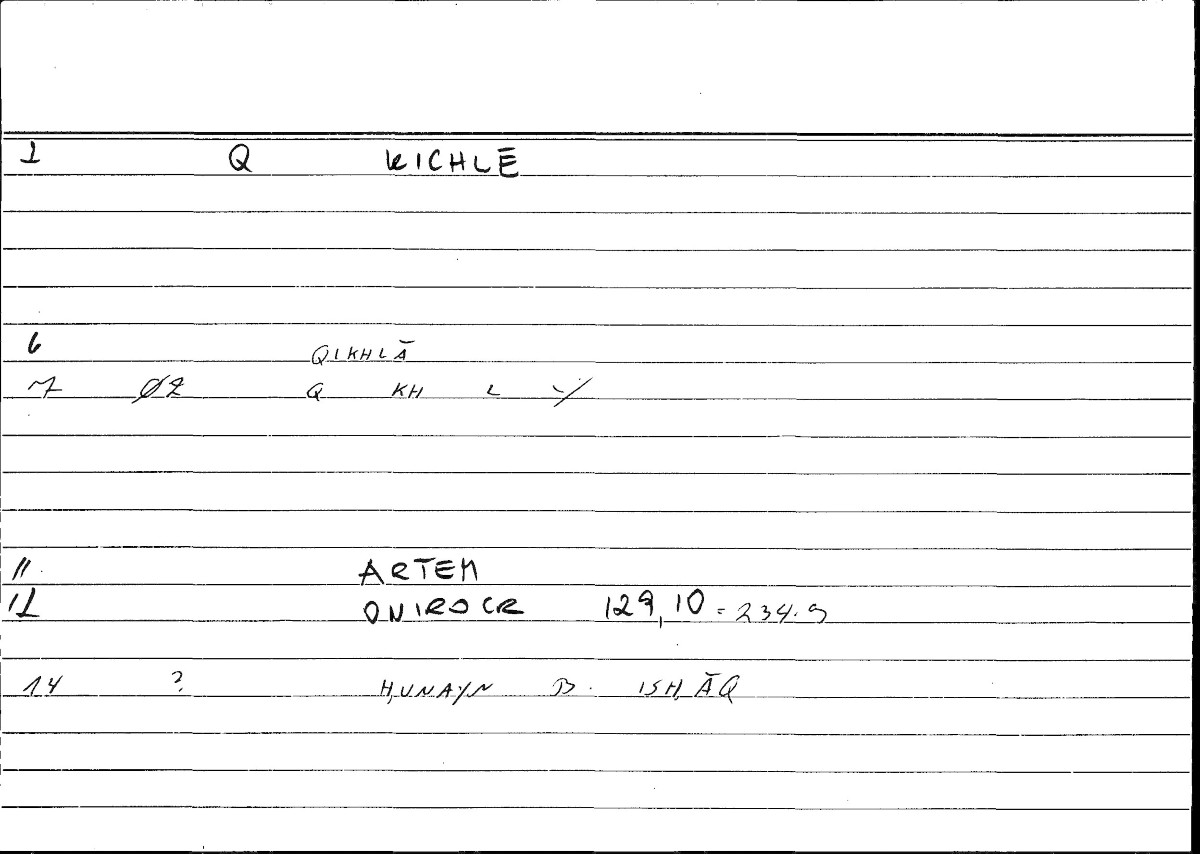 1 Q KICHLĒ
6 QIKHLĀ
7 ØZ Q KH L Y
11 ARTEM
12 ONIROCR 129,10 = 234.9
14 ? ḤUNAYN B. ISḤĀQ